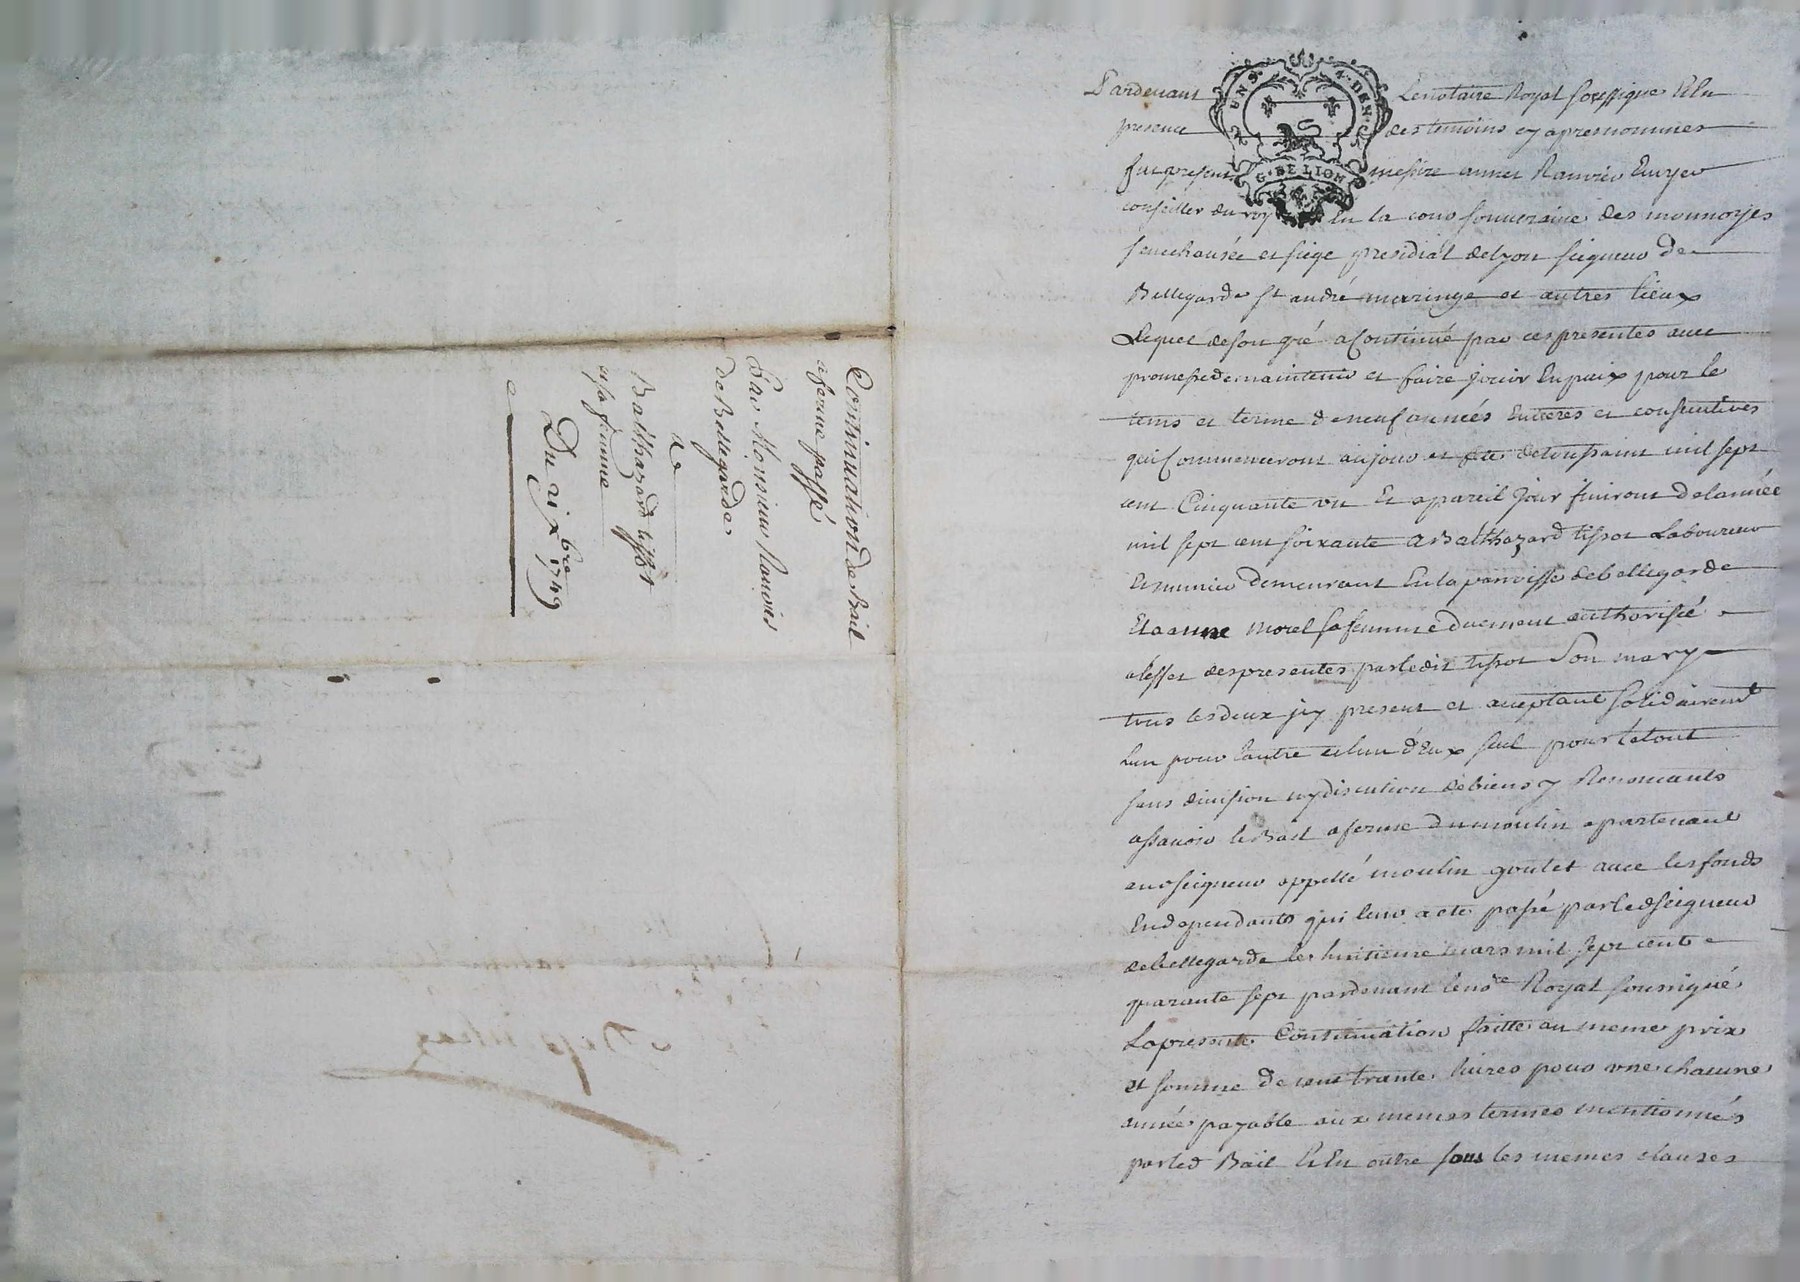 Continuation de Bail
a ferme passé
Par Monsieur Ranvier
de Bellegarde
a
Balthazard tissot
et sa femme
Du 21 xbre 1749
UN S. 4 DEN.
G. DE LION
Pardevant Le notaire Royal soussigné Et En
presence des temoins cy apres nommés
fut present messire annet Ranvier Ecuyer
conseiller du roy En la cour souveraine des monnoyes
senechausée et siege presidial de lyon seigneur de
Bellegarde st andré maringe et autres lieux
Lequel de son gré a Continué par ces presentes avec
promesse de maintenir et faire jouir En paix pour le
tems et terme de neuf années Entieres et consecutives
qui Commenceront au jour et fete de toussaint mil sept
cent Cinquante un Et a pareil jour finiront de lannée
mil sept cent soixante a Balthazard tissot Laboureur
Et munier demeurant En la parroisse de bellegarde
Et a anne morel sa femme duement authorisée
a leffet des presentes par ledit tissot son mary
tous les deux jcy present et acceptant solidairement
Lun pour lautre et lun d'Eux seul pour le tout
sans division ny discution de biens y Renoncants
assavoir le Bail a ferme du moulin apartenant
aud seigneur appellé moulin goulet avec les fonds
En dependants qui leur a eté passé par led seigneur
de bellegarde le huitieme mars mil sept cent
quarante sept pardevant le nore Royal soussigné
La presente Continuation faitte au meme prix
et somme de cent trante livres pour une chacune
année payable aux memes termes mentionnés
par led Bail Et En outre sous les memes clauses